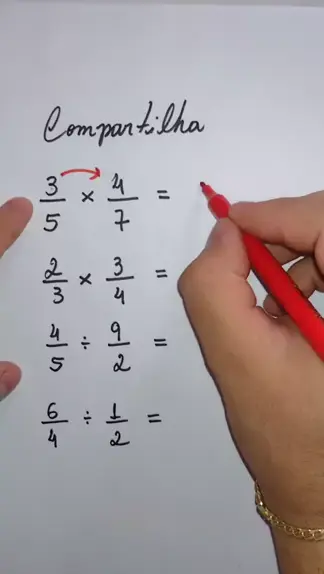 Compartilha
3/5 × 4/7 =
2/3 × 3/4 =
4/5 ÷ 9/2 =
6/4 ÷ 1/2 =